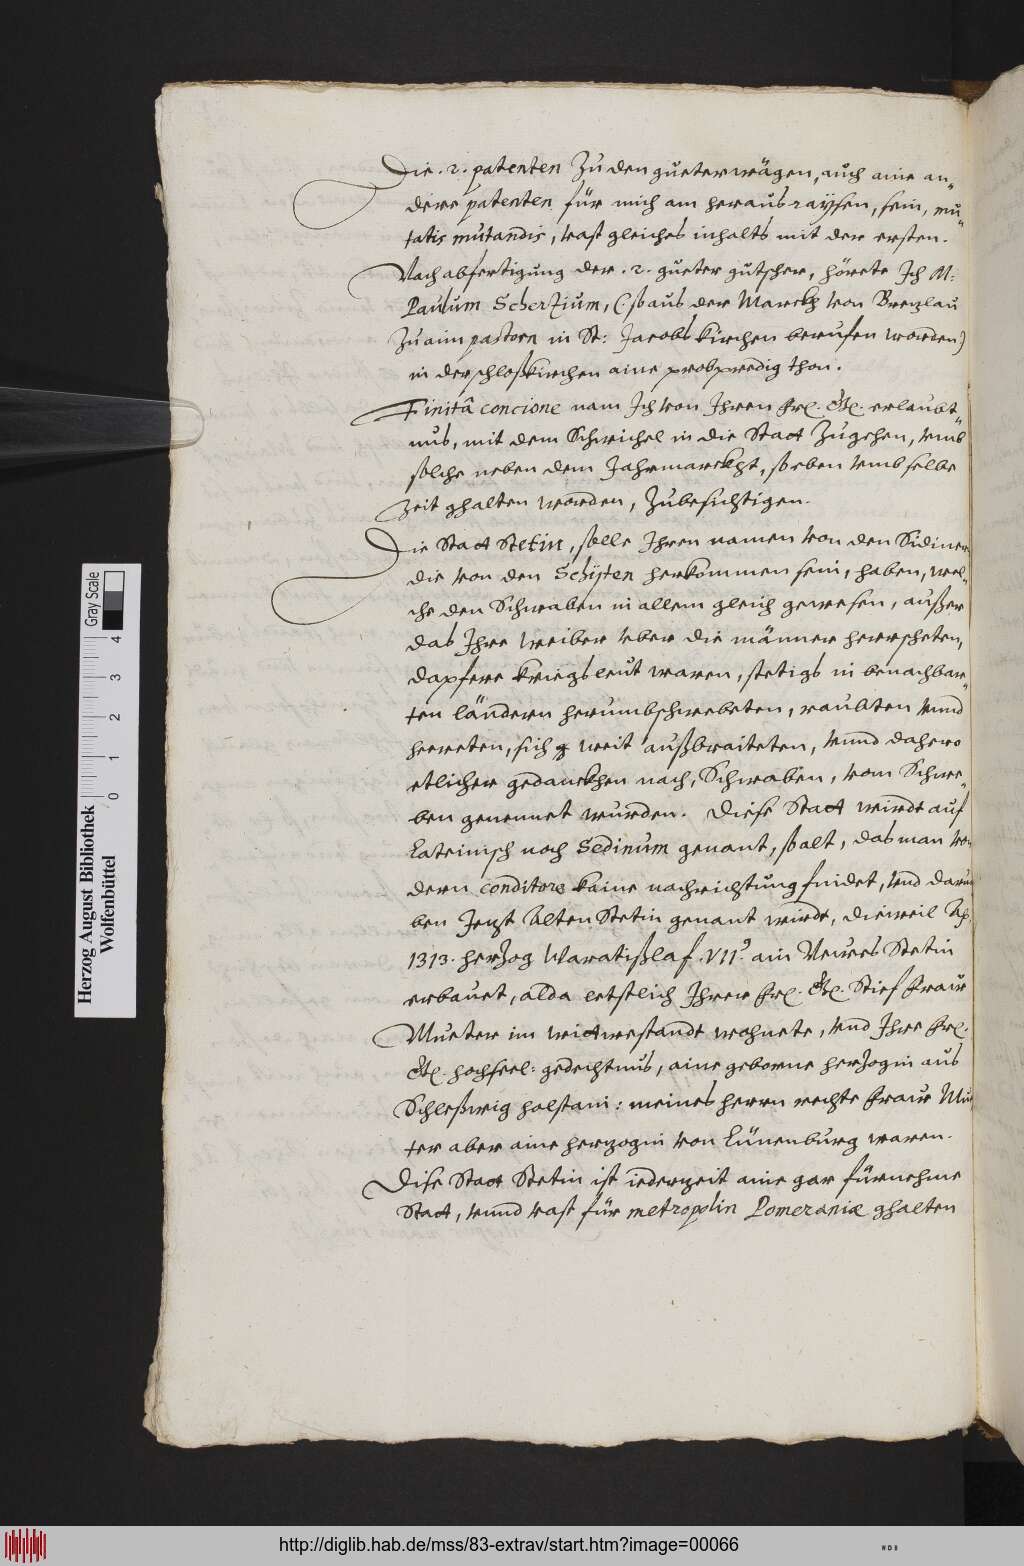 Die .2. patenten Zu den gueterwägen, auch aine an„
dere patenten für mich am heraus raÿsen, sein, mu„
tatis mutandis, vast gleiches inhalts mit der ersten.
Nach abfertigung der .2. gueter gutscher, hörete Ich M:
Paulum Scherzium, (: so aus der Marckh von Prenzlau
Zu aim pastorn in St: Jacobs kirchen berufen worden)
in der schloßkirchen aine probpredig thon.
Finitâ concione nam Ich von Ihren Frl. Gn. erlaubt„
nus, mit dem Schwichel in die Statt Zugehen, vmb
solche neben dem Jahrmarckht, so eben vmb selbe
Zeit ghalten worden, Zubesichtigen.
Die Statt Stetin, solle Ihren namen von den Sidinen
die von den Schÿten herkommen sein, haben, wel„
che den Schwaben in allem gleich gewesen, außer
das Ihre weiber vber die männer herrscheten,
dapfere kriegsleut waren, stetigs in benachbar„
ten ländern herumbschwebeten, raubten vnnd
heereten, sich weit außbraiteten, vnnd dahero
etlicher gedanckhen nach, Schwaben, vom Schwe„
ben genennet wurden. Diese Statt wirdt auf
Lateinisch noch Sedinum genant, so alt, das man von
dern conditore kaine nachrichtung findet, vnd darne
ben Jezt Alten Stetin genant wirdt, dieweil Ao.
1313. herzog Waratißlaf .VII? ain Newes Stetin
erbauet, alda letstlich Ihrer Frl. Gn. Stief Fraw
Mueter im wittwestandt wohnete, vnd Ihre Frl.
Gn. hochseel: gedechtnus, aine geborne herzogin aus
Schleßwig holstain: meines herrn rechte Fraw Mue
ter aber aine herzogin von Lünenburg waren.
Dise Statt Stetin ist iederzeit aine gar fürnehme
Statt, vnnd vast für metropolin Pomeraniæ ghalten
Herzog August Bibliothek
Wolfenbüttel
Gray Scale
0 1 2 3 4
http://diglib.hab.de/mss/83-extrav/start.htm?image=00066
WDB